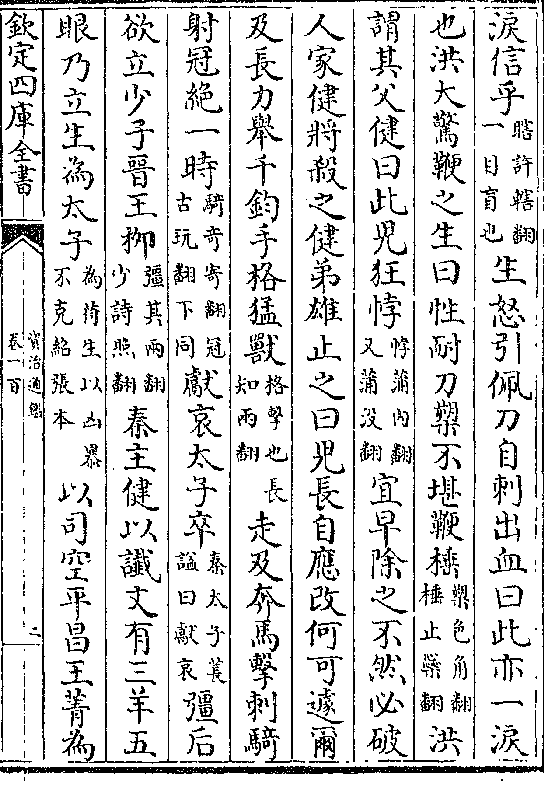 淚信乎瞎許轄翻一目盲也生怒引佩刀自刺出血曰此亦一淚
也洪大驚鞭之生曰性耐刀槊不堪鞭棰槊色角翻棰止橤翻洪
謂其父健曰此兒狂悖悖蒲内翻又蒲没翻宜早除之不然必破
人家健將殺之健弟雄止之曰兒長自應改何可遽爾
及長力舉千鈞手格猛獸格擊也長知兩翻走及奔馬擊刺騎
射冠絶一時騎奇寄翻冠古玩翻下同獻哀太子卒秦太子萇諡曰獻哀彊后
欲立少子晉王栁彊其兩翻少詩照翻秦主健以讖文有三羊五
眼乃立生為太子為苻生以凶暴不克紹張本以司空平昌王菁為
欽定四庫全書
資治通鑑
卷一百
二